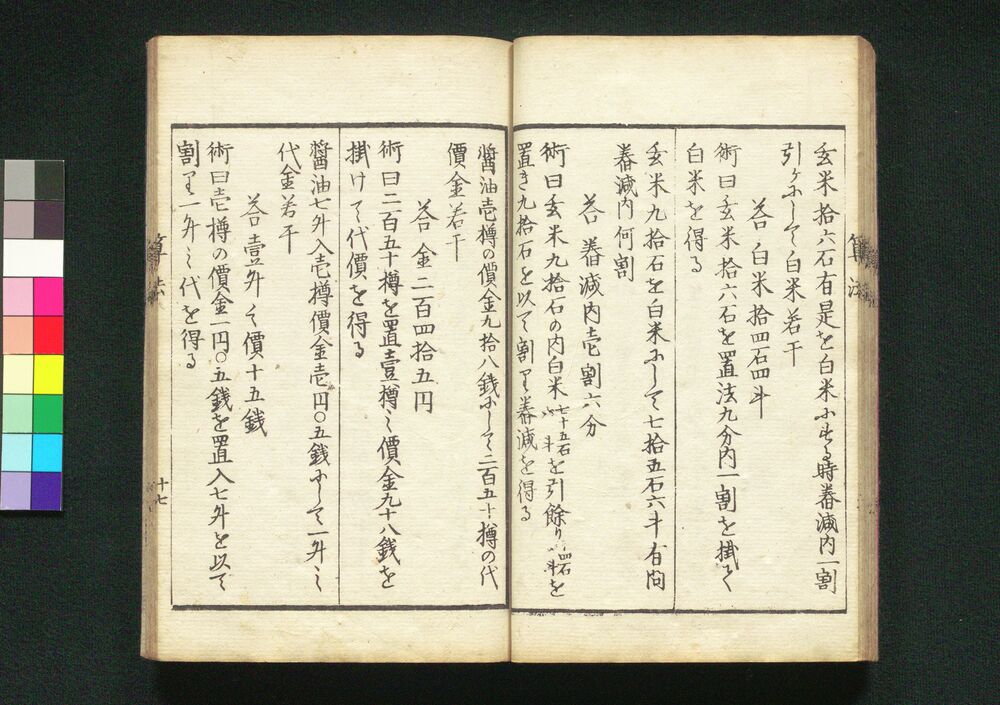 玄米拾六石有是を白米にする時舂減内一割
引ケにして白米若干
答 白米拾四石四斗
術曰玄米拾六石を置法九分内一割を掛て
白米を得る
玄米九拾石を白米にして七拾五石六斗有問
舂減内何割
答 舂減内壱割六分
術曰玄米九拾石の内白米七十五石六斗を引餘り十四石四斗を
置き九拾石を以て割り舂減を得る
醤油壱樽の價金九拾八銭にして二百五十樽の代
價金若干
答 金二百四拾五円
術曰二百五十樽を置壹樽之價金九十八銭を
掛けて代價を得る
醤油七升入壱樽價金壱円〇五銭にして一升之
代金若干
答壹升之價十五銭
術曰壱樽の價金一円〇五銭を置入七升を以て
割り一升之代を得る
算法
十七